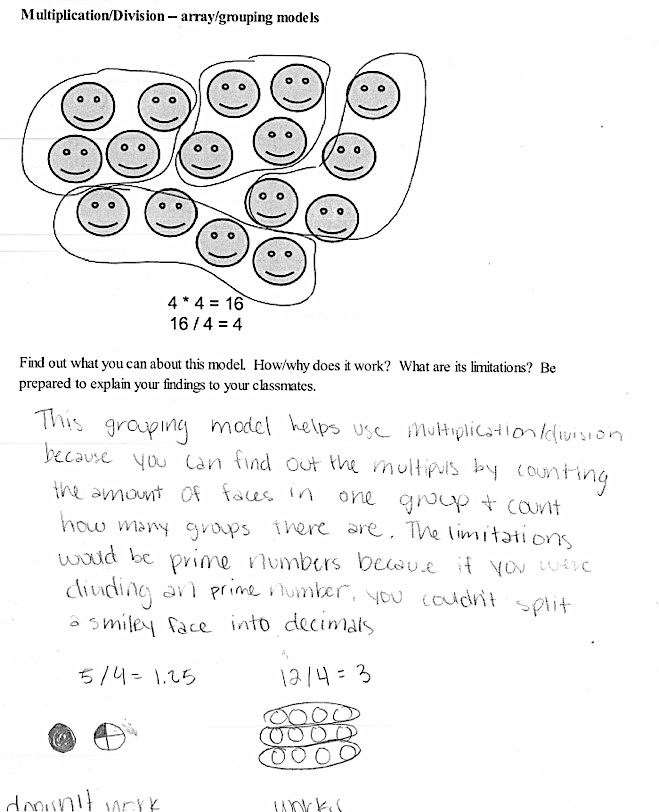 Multiplication/Division – array/grouping models
4 * 4 = 16
16 / 4 = 4
Find out what you can about this model. How/why does it work? What are its limitations? Be
prepared to explain your findings to your classmates.
This grouping model helps use multiplication/division
because you can find out the multipuls by counting
the amount of faces in one group + count
how many groups there are. The limitations
would be prime numbers because if you were
dividing an prime number, you couldn't split
a smiley face into decimals
5/4 = 1.25 12/4 = 3
doesn't work works